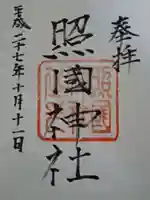 奉拝
照國神社
平成二十七年十月十一日